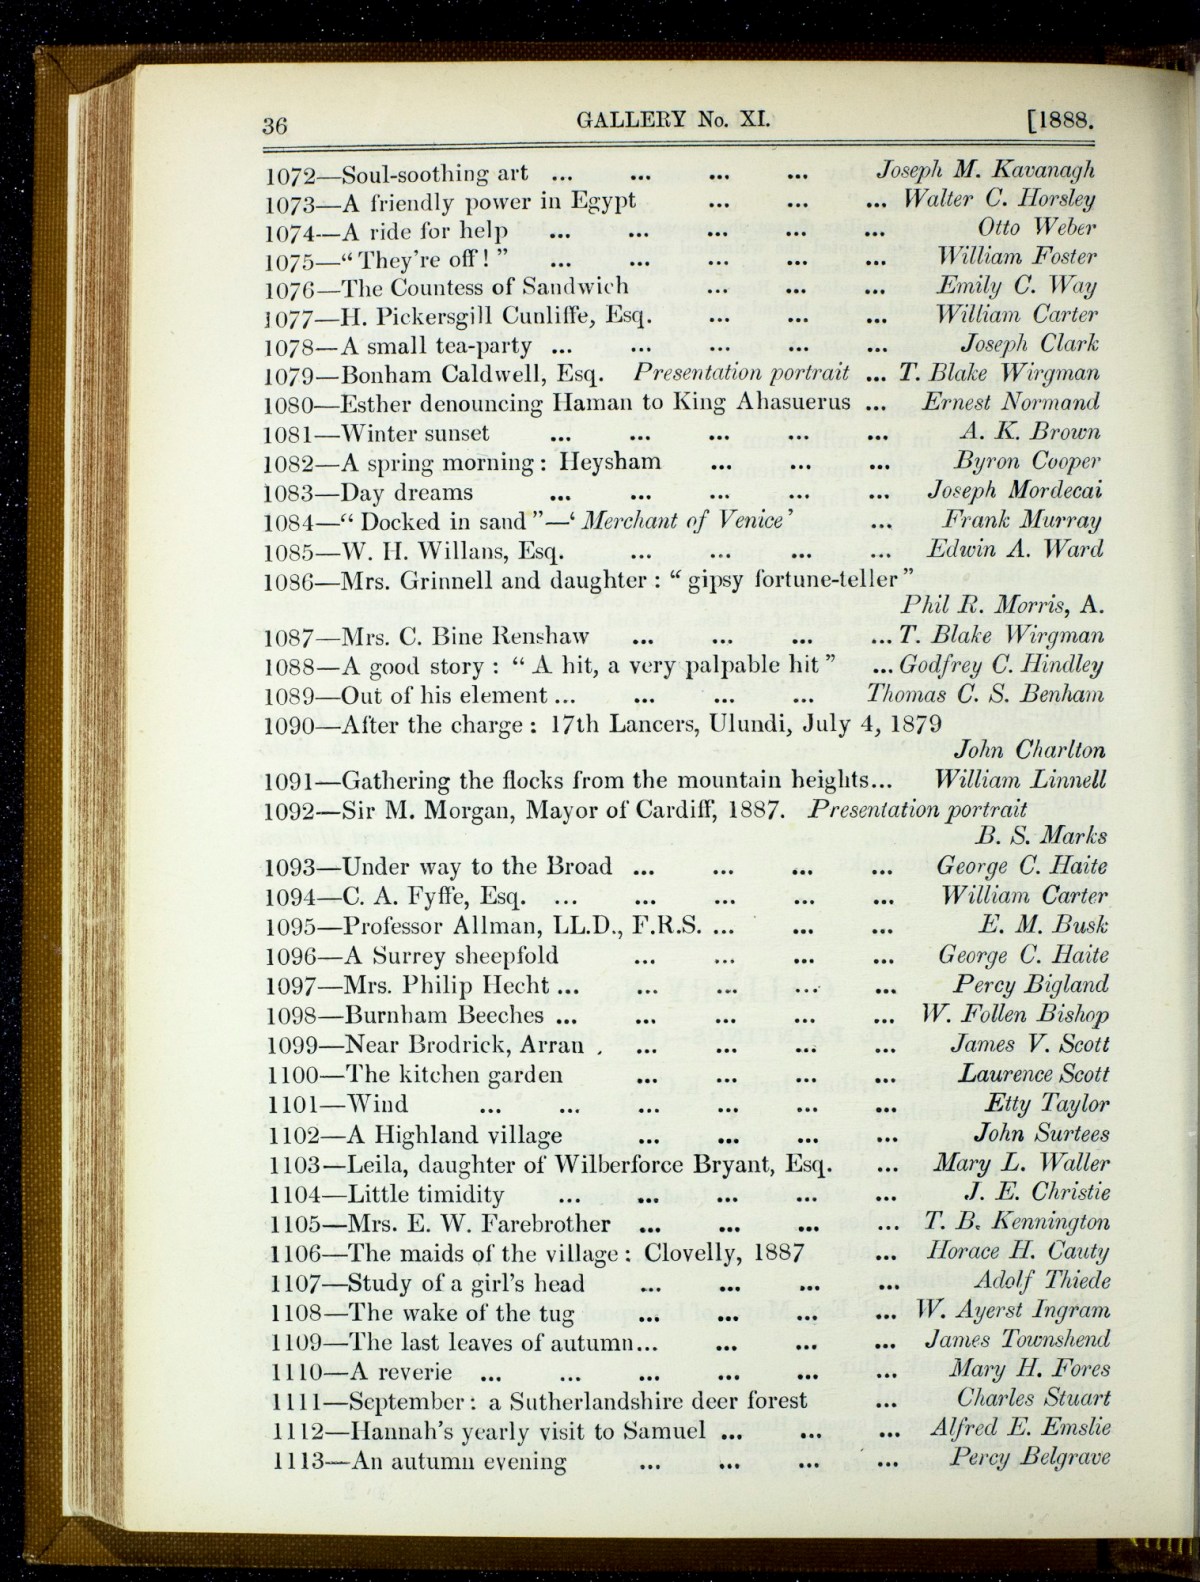 36 GALLERY No. XI. [1888.
1072—Soul-soothing art ... ... ... ... Joseph M. Kavanagh
1073—A friendly power in Egypt ... ... ... Walter C. Horsley
1074—A ride for help ... ... ... ... ... Otto Weber
1075—“They're off!” ... ... ... ... ... William Foster
1076—The Countess of Sandwich ... ... ... Emily C. Way
1077—H. Pickersgill Cunliffe, Esq. ... ... ... William Carter
1078—A small tea-party ... ... ... ... ... Joseph Clark
1079—Bonham Caldwell, Esq. Presentation portrait ... T. Blake Wirgman
1080—Esther denouncing Haman to King Ahasuerus ... Ernest Normand
1081—Winter sunset ... ... ... ... ... A. K. Brown
1082—A spring morning: Heysham ... ... ... Byron Cooper
1083—Day dreams ... ... ... ... ... Joseph Mordecai
1084—“Docked in sand”—‘Merchant of Venice’ ... Frank Murray
1085—W. H. Willans, Esq. ... ... ... ... Edwin A. Ward
1086—Mrs. Grinnell and daughter: “gipsy fortune-teller”
Phil R. Morris, A.
1087—Mrs. C. Bine Renshaw ... ... ... ... T. Blake Wirgman
1088—A good story: “A hit, a very palpable hit” ... Godfrey C. Hindley
1089—Out of his element... ... ... ... Thomas C. S. Benham
1090—After the charge: 17th Lancers, Ulundi, July 4, 1879
John Charlton
1091—Gathering the flocks from the mountain heights... William Linnell
1092—Sir M. Morgan, Mayor of Cardiff, 1887. Presentation portrait
B. S. Marks
1093—Under way to the Broad ... ... ... ... George C. Haite
1094—C. A. Fyffe, Esq. ... ... ... ... ... William Carter
1095—Professor Allman, LL.D., F.R.S. ... ... ... E. M. Busk
1096—A Surrey sheepfold ... ... ... ... George C. Haite
1097—Mrs. Philip Hecht... ... ... ... ... Percy Bigland
1098—Burnham Beeches ... ... ... ... ... W. Follen Bishop
1099—Near Brodrick, Arran . ... ... ... ... James V. Scott
1100—The kitchen garden ... ... ... ... Laurence Scott
1101—Wind ... ... ... ... ... ... Etty Taylor
1102—A Highland village ... ... ... ... John Surtees
1103—Leila, daughter of Wilberforce Bryant, Esq. ... Mary L. Waller
1104—Little timidity ... ... ... ... ... J. E. Christie
1105—Mrs. E. W. Farebrother ... ... ... ... T. B. Kennington
1106—The maids of the village: Clovelly, 1887 ... Horace H. Cauty
1107—Study of a girl's head ... ... ... ... Adolf Thiede
1108—The wake of the tug ... ... ... ... W. Ayerst Ingram
1109—The last leaves of autumn... ... ... ... James Townshend
1110—A reverie ... ... ... ... ... ... Mary H. Fores
1111—September: a Sutherlandshire deer forest ... Charles Stuart
1112—Hannah's yearly visit to Samuel ... ... ... Alfred E. Emslie
1113—An autumn evening ... ... ... ... Percy Belgrave